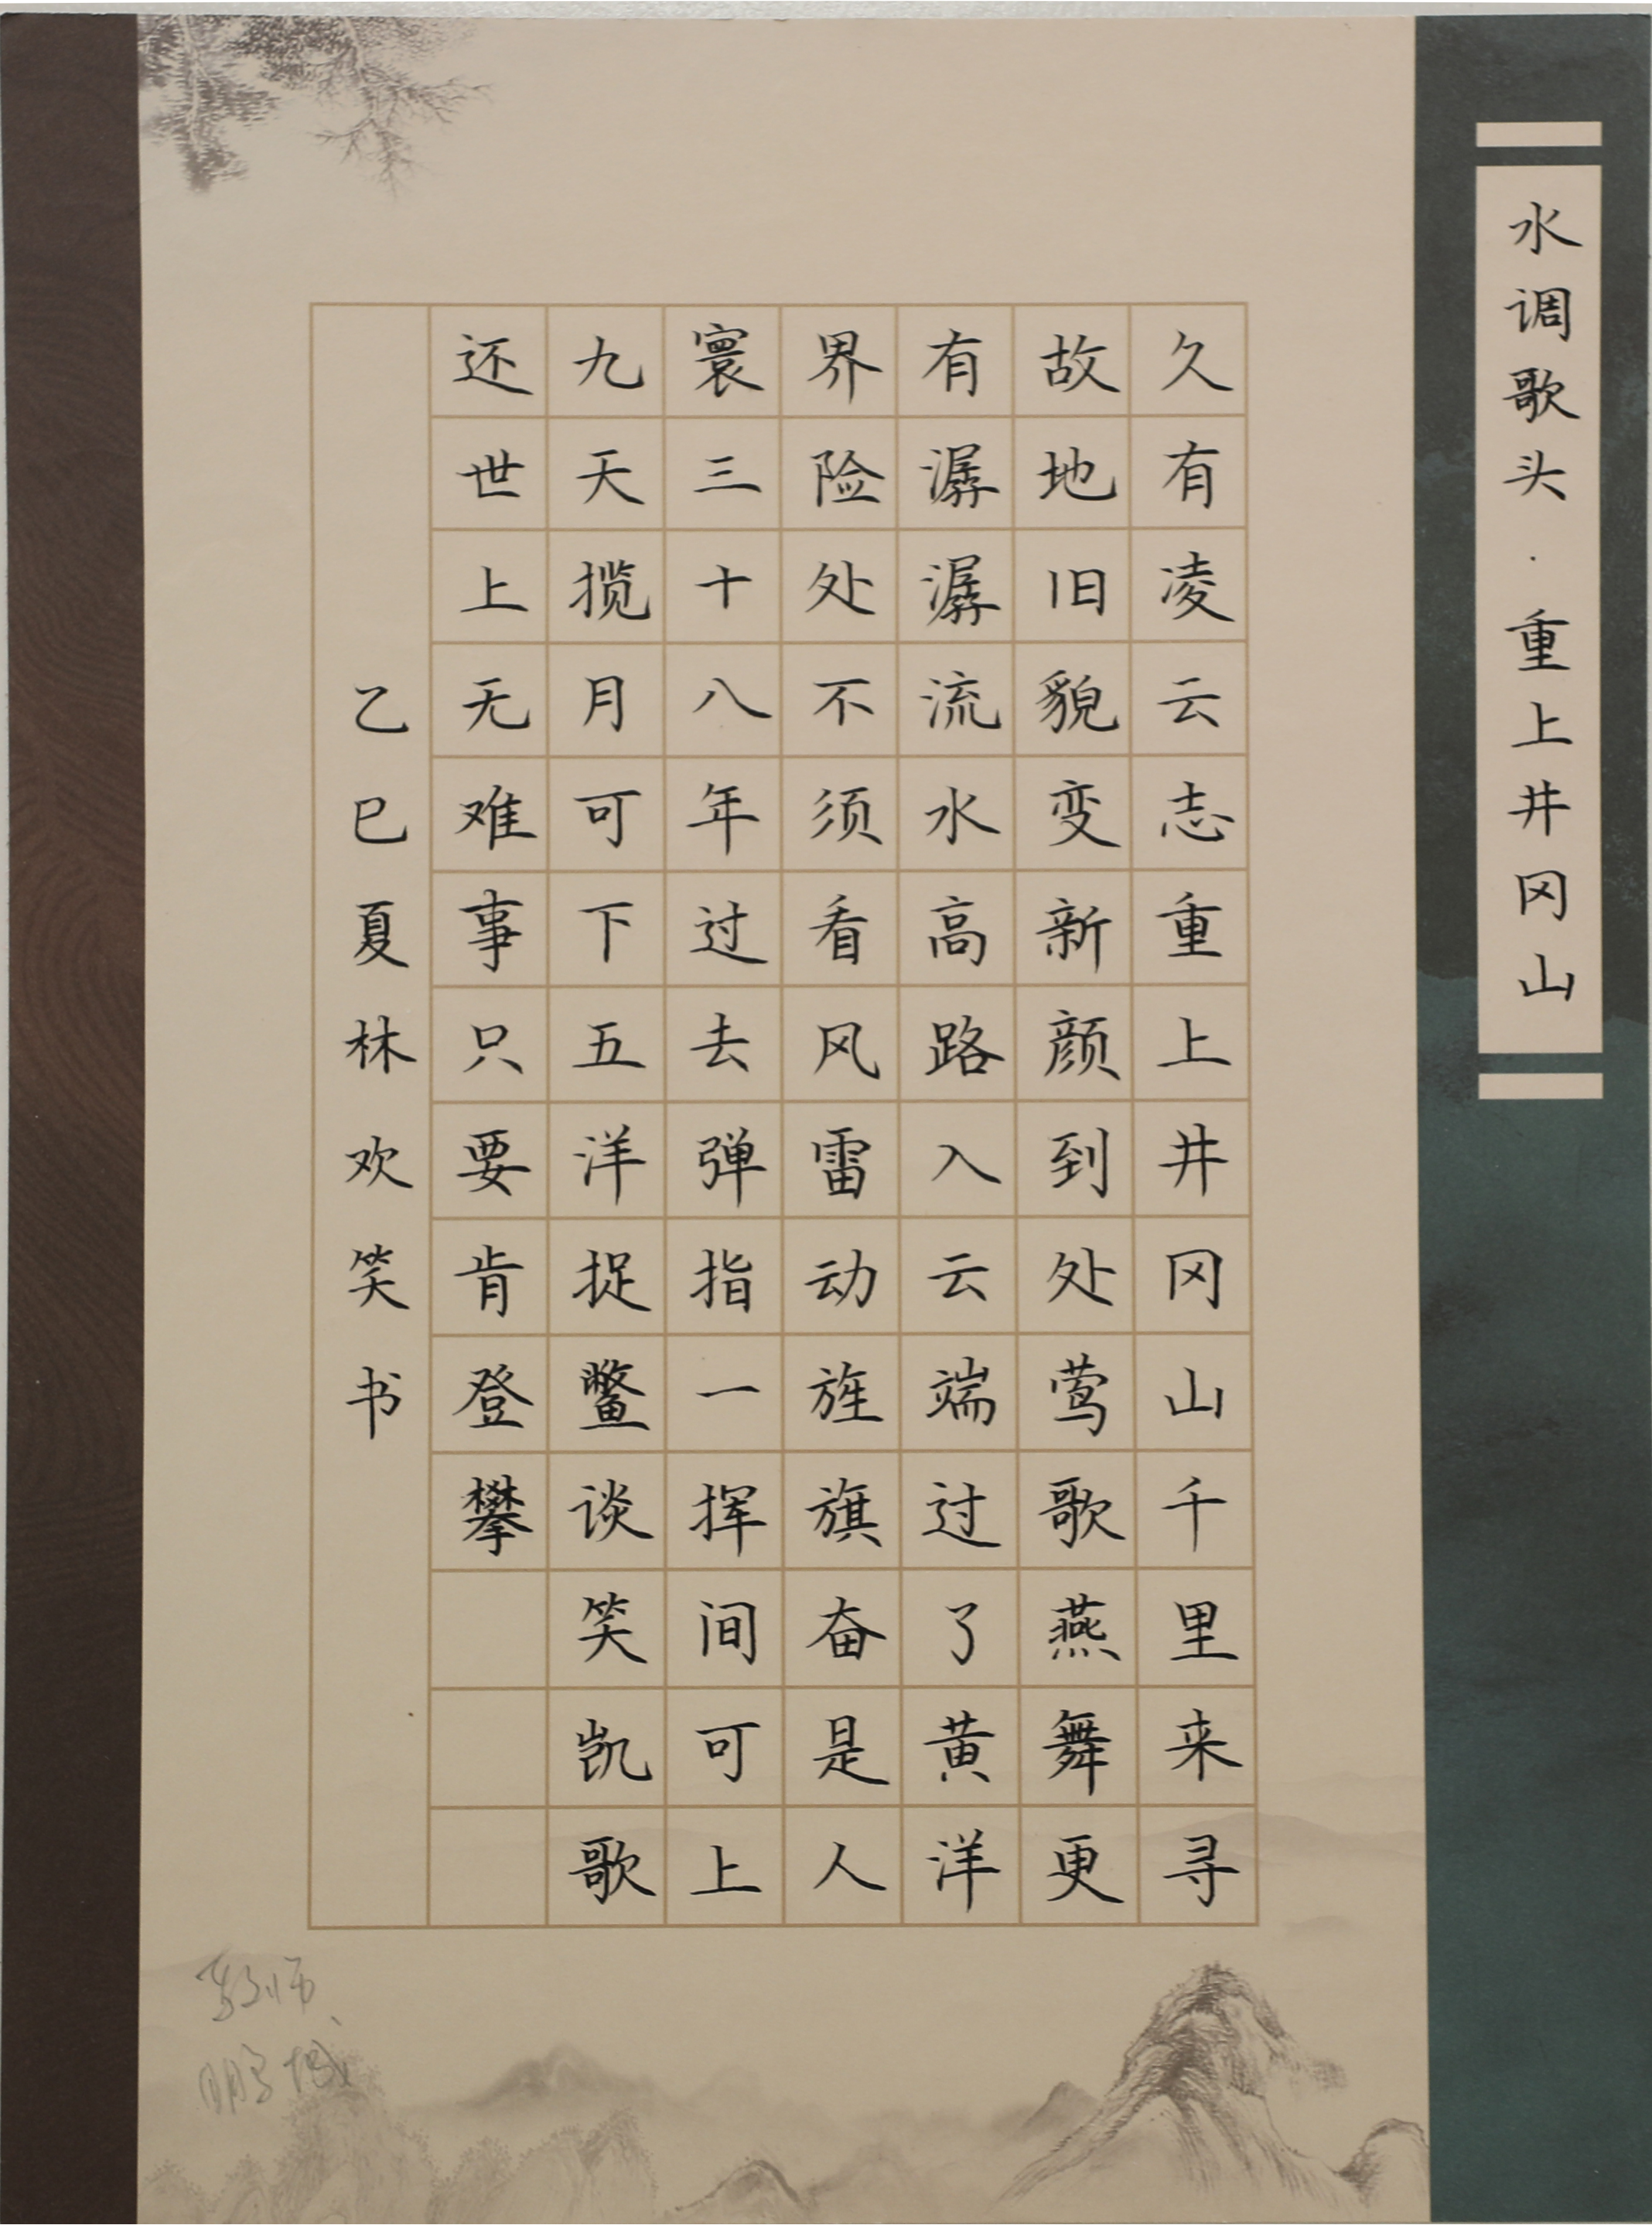 水调歌头·重上井冈山
久有凌云志重上井冈山千里来寻
故地旧貌变新颜到处莺歌燕舞更
有潺潺流水高路入云端过了黄洋
界险处不须看风雷动旌旗奋是人
寰三十八年过去弹指一挥间可上
九天揽月可下五洋捉鳖谈笑凯歌
还世上无难事只要肯登攀
乙巳夏林欢笑书